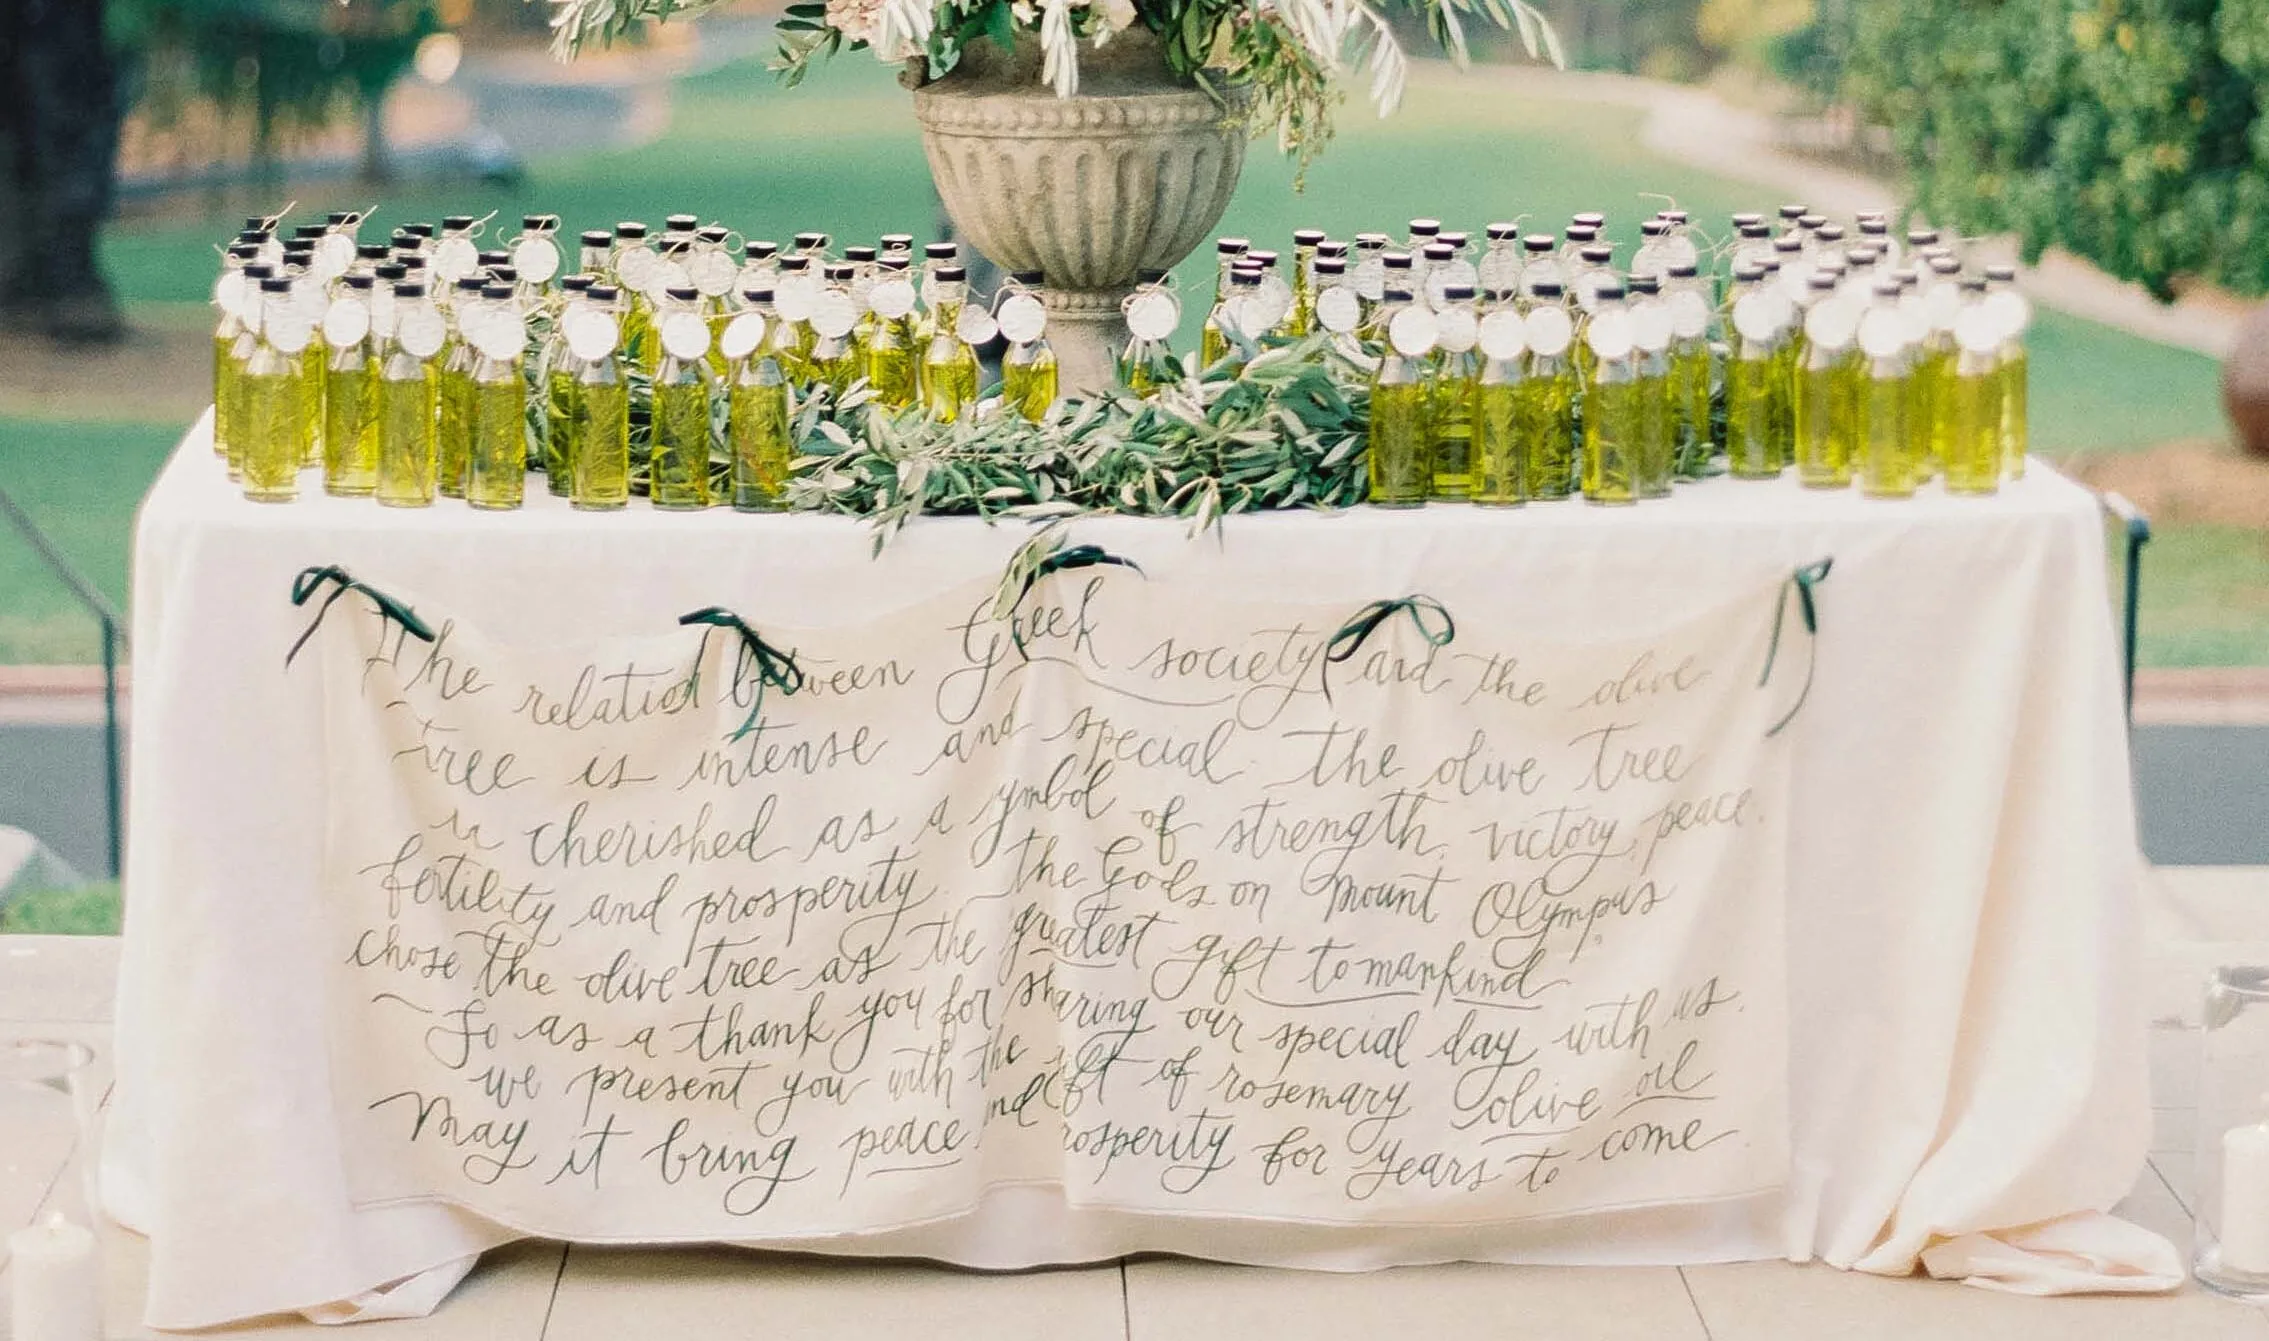 The relation between Greek society and the olive
tree is intense and special. The olive tree
is cherished as a symbol of strength, victory, peace,
fertility and prosperity. The Gods on Mount Olympus
chose the olive tree as the greatest gift to mankind
So as a thank you for sharing our special day with us.
we present you with the gift of rosemary olive oil
May it bring peace and prosperity for years to come